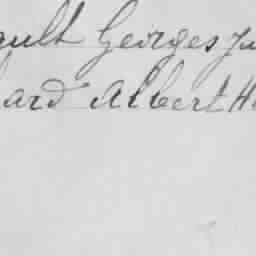 ault Georges Ju
ard Albert H